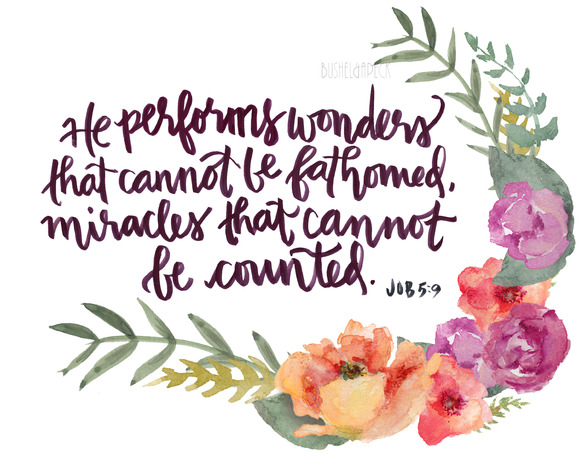 BUSHEL&APECK
He performs wonders
that cannot be fathomed,
miracles that cannot
be counted.
JOB 5:9